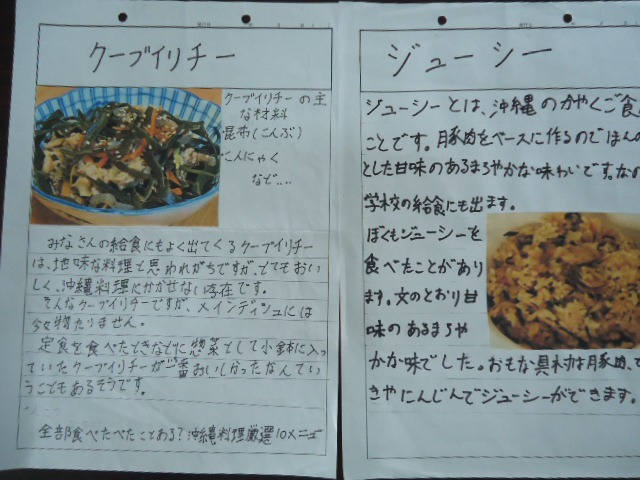 クーブイリチー
クーブイリチーの主
な材料
昆布(こんぶ)
こんにゃく
など....
みなさんの給食にもよく出てくるクーブイリチー
は、地味な料理と思われがちですが、とてもおい
しく、沖縄料理にかかせない存在です。
そんなクーブイリチーですが、メインディシュには
少々物たりません。
定食を食べたときなどに惣菜として小鉢に入っ
ていたクーブイリチーが一番おいしかったなんてい
うこともあるそうです。
全部食べたべたことある?沖縄料理厳選10メニュー
ジューシー
ジューシーとは、沖縄のかやくご食
ことです。豚肉をベースに作るのでほんの
とした甘味のあるまろやかな味わいです。なの
学校の給食にも出ます。
ぼくもジューシーを
食べたことがあり
ます。文のとおり甘
味のあるまろや
かな味でした。おもな具材は豚肉、
きやにんじんでジューシーができます。